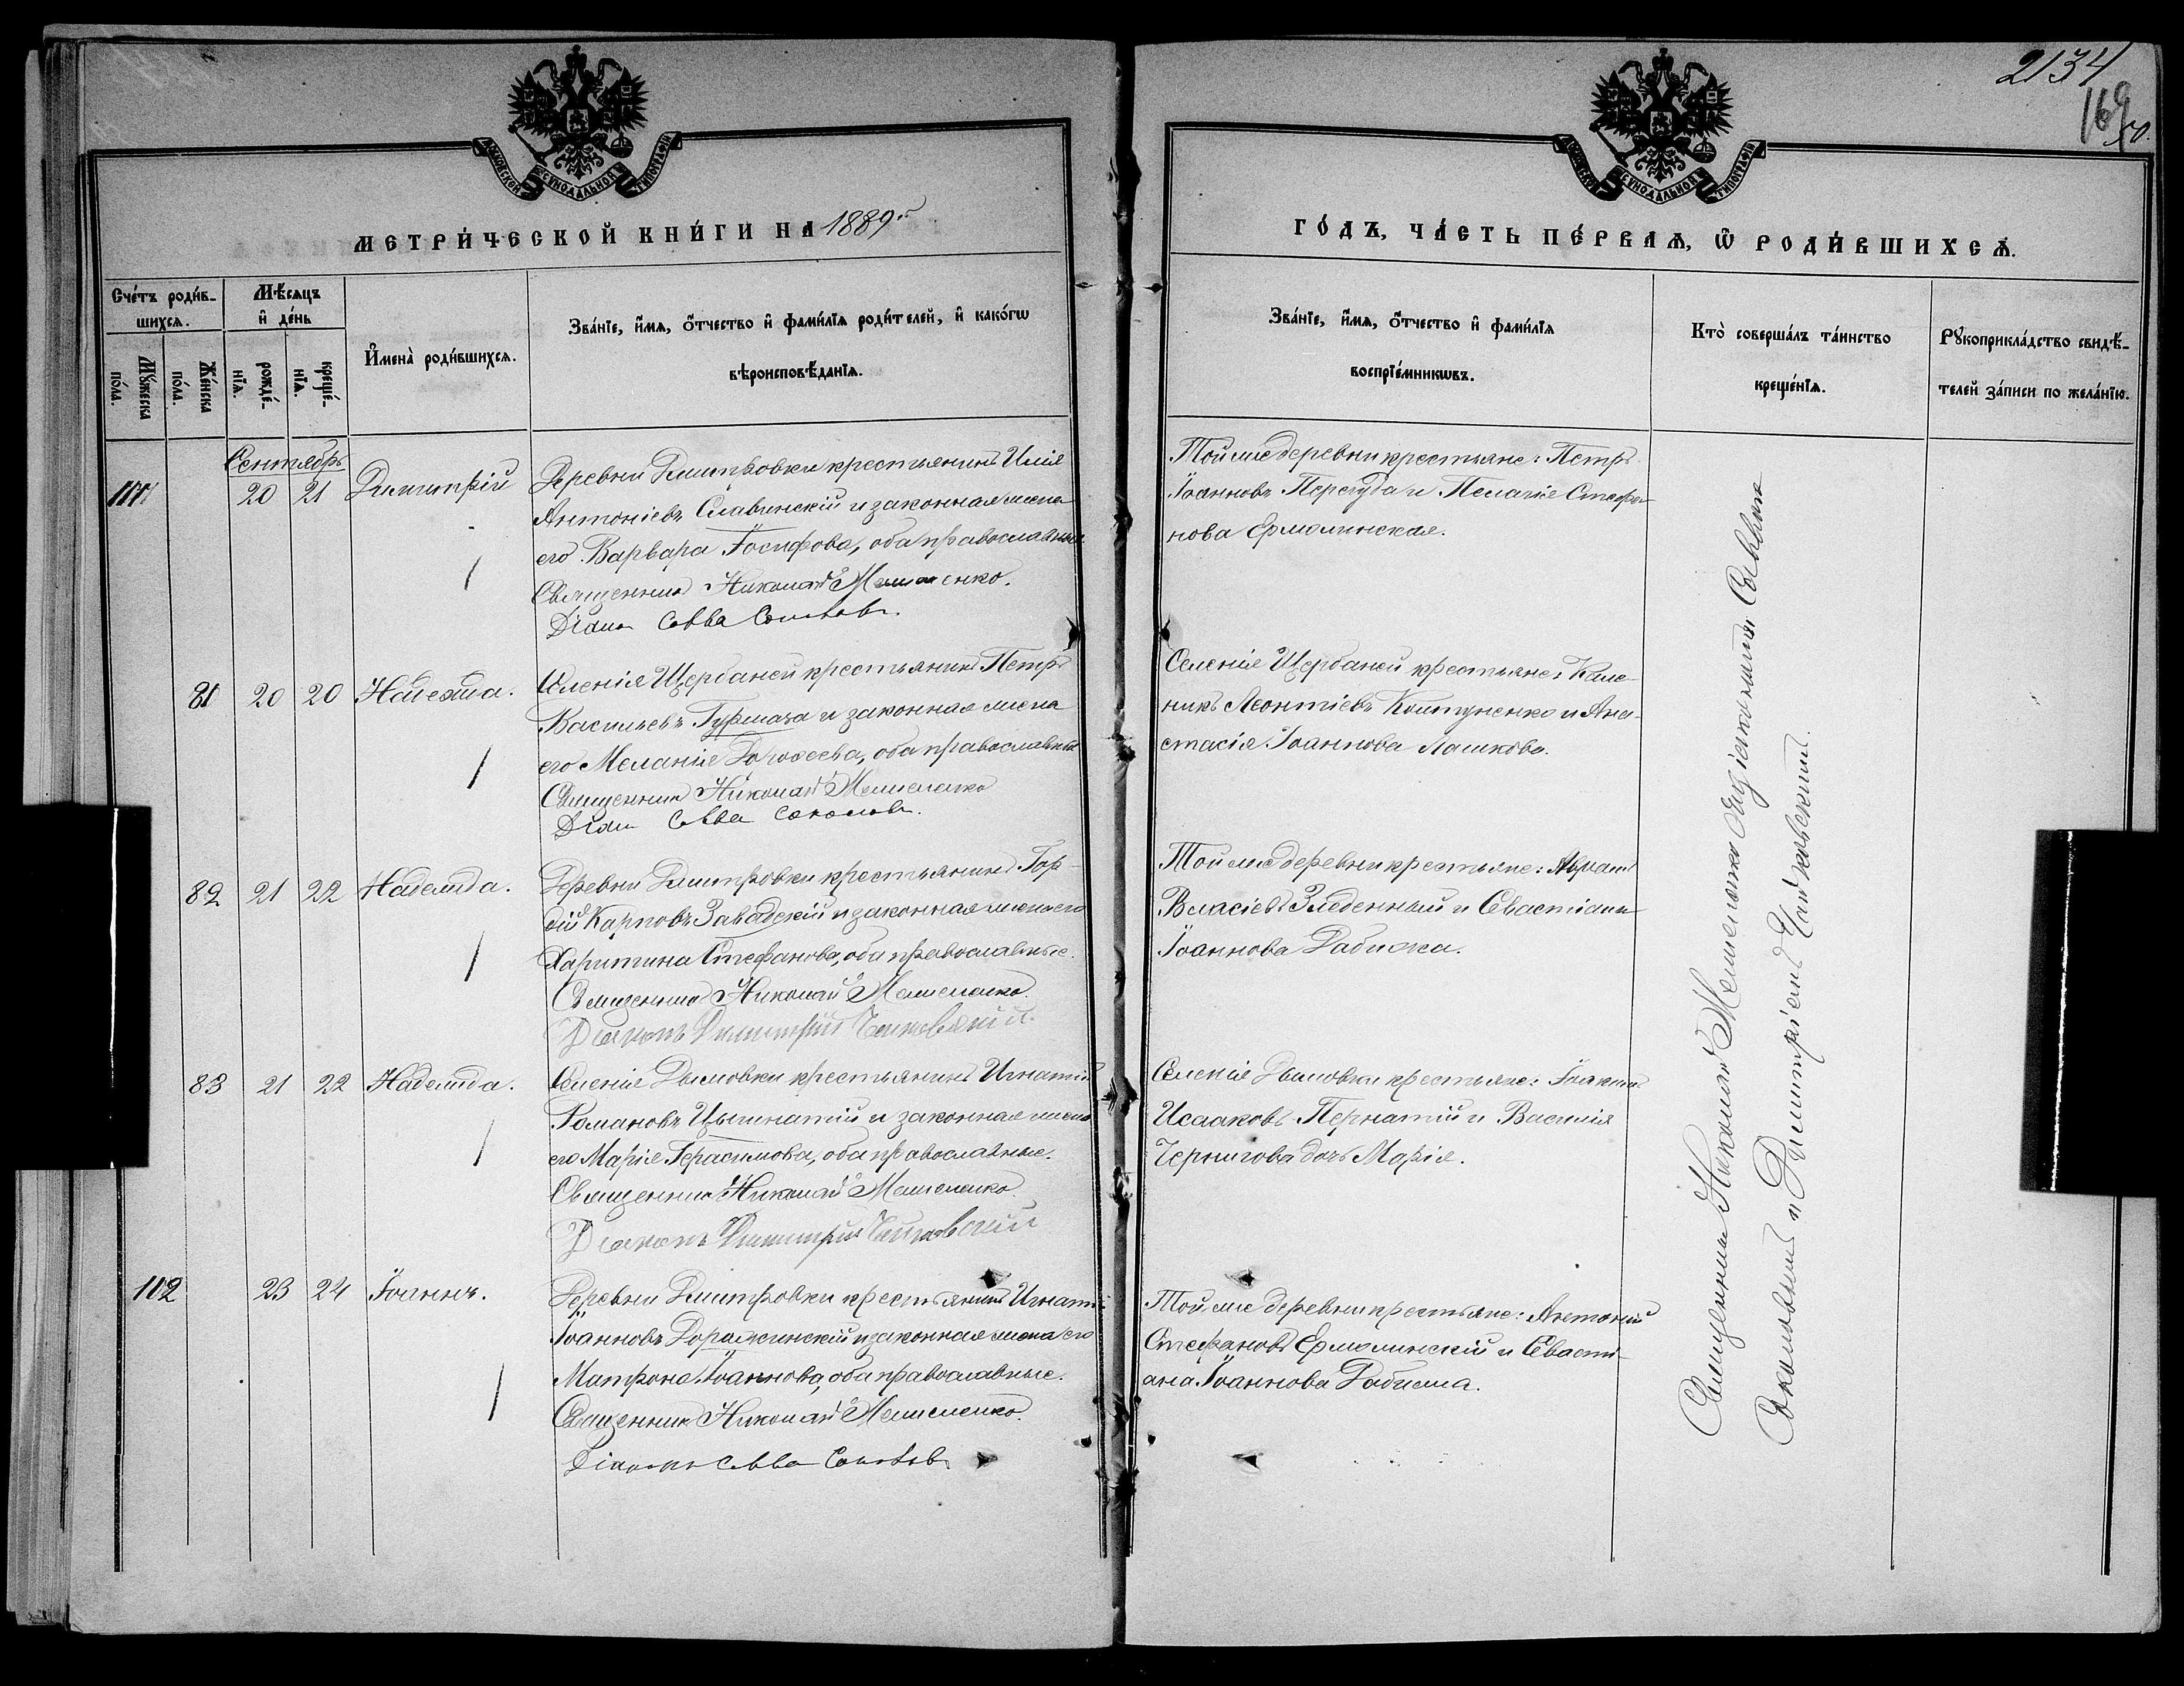 2134
169
50.
МОСКОВСКОЙ СѴНОДАЛЬНОЙ ТИПОГРАФІИ
МОСКОВСКОЙ СѴНОДАЛЬНОЙ ТИПОГРАФІИ
МЕТРИ́ЧЕСКОЙ КНИ́ГИ НА 1889 г
ГО́ДЪ, ЧА́СТЬ ПЕ́РВАѦ, Ѽ РОДИ́ВШИХСѦ.
Сче́тъ роди́в-
шихсѧ.
Мѣ́сѧцъ
и҆ де́нь
Мꙋ́жеска
по́ла.
Же́нска
по́ла.
рожде́-
нїѧ.
креще́-
нїѧ.
И҆мена̀ роди́вшихсѧ.
Зва́нїе, и҆́мѧ, ѻ҆́тчество и҆ фами́лїѧ роди́телей, и҆ како́гѡ
вѣроисповѣ́данїѧ.
Зва́нїе, и҆́мѧ, ѻ҆́тчество и҆ фами́лїѧ
воспрїе́мникѡвъ.
Кто̀ соверша́лъ та́инство
креще́нїѧ.
Рꙋкоприкла́дство свидѣ́-
телей за́писи по жела́нїю.
Сентябрь
20 21 Димитрій
Деревни Дмитровки крестьянинъ Илія
Антоніевъ Славинскій и законная жена
его Варвара Іосифова, оба православные
Священникъ Николай Мелиенко.
Діаконъ Савва Соколовъ.
Той же деревни крестьяне: Петръ
Іоанновъ Перегуда и Пелагія Стефа-
нова Ермолинская.
81 20 20 Надежда.
Селенія Щербаней крестьянинъ Петръ
Васильевъ Гурмаза и законная жена
его Меланія Дорофеева, оба православные
Священникъ Николай Мелиенко
Діаконъ Савва Соколовъ.
Селенія Щербаней крестьяне: Кале-
никъ Леонтіевъ Колтуненко и Ана-
стасія Іоаннова Лашкова.
82 21 22 Надежда.
Деревни Дмитровки крестьянинъ Гор-
дій Карповъ Завадскій и законная жена его
Харитина Стефанова, оба православные.
Священникъ Николай Мелиенко.
Діаконъ Димитрій Чайковскій.
Той же деревни крестьяне: Авраамъ
Власіевъ Зледенный и Севастіана
Іоаннова Рабижа.
83 21 22 Надежда.
Селенія Дымовки крестьянинъ Игнатій
Романовъ Цыгнатій и законная жена
его Марія Герасимова, оба православные.
Священникъ Николай Мелиенко.
Діаконъ Димитрій Чайковскій
Селенія Дымовки крестьяне: Іоакимъ
Исааковъ Пернатій и Василія
Чернигова дочь Марія.
102 23 24 Іоаннъ.
Деревни Дмитровки крестьянинъ Игнатій
Іоанновъ Доражинскій и законная жена его
Матрона Іоаннова, оба православные.
Священникъ Николай Мелиенко.
Діаконъ Савва Соколовъ
Той же деревни крестьяне: Антоній
Стефановъ Ермолинскій и Севасті-
ана Іоаннова Рабижа.
Священникъ Николай Мелиенко съ діаконами Саввою
Соколовымъ и Димитріемъ Чайковскимъ.